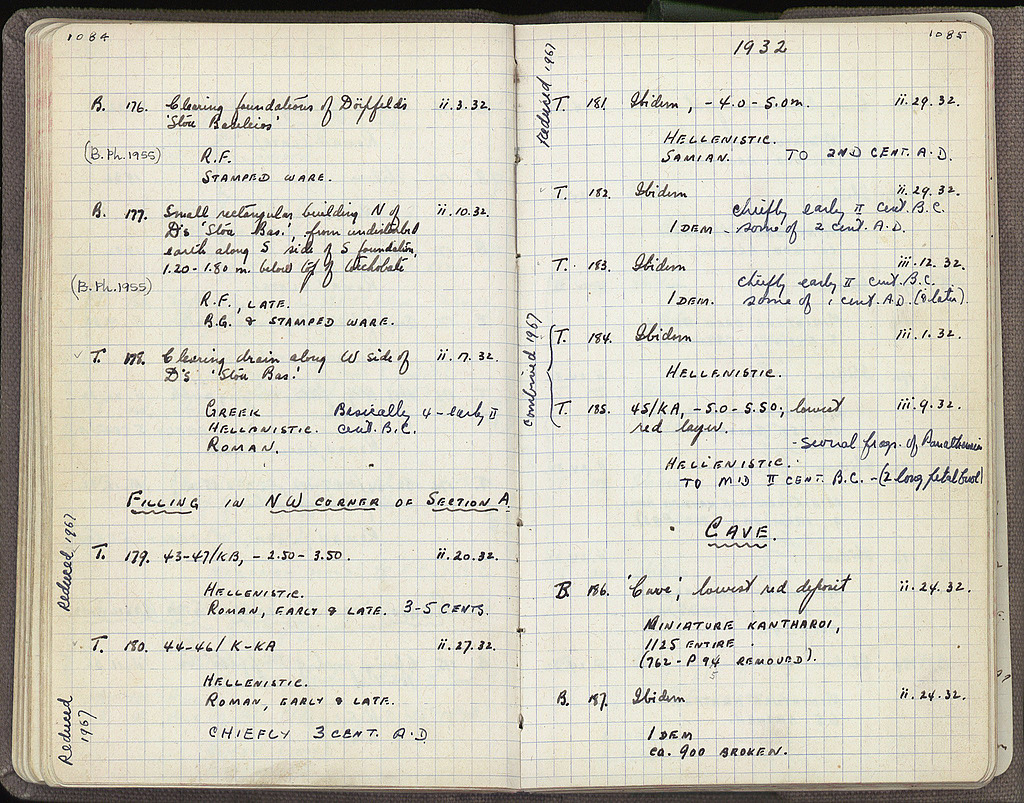 1084
B. 176. Clearing foundations of Dörpfeld's ii.3.32.
'Stoa Basileios'
(B.Ph.1955) R.F.
STAMPED WARE.
B. 177. Small rectangular building N of ii.10.32.
D's 'Stoa Bas.', from undisturbed
earth along S side of S foundation,
1.20-1.80 m. below top of
(B.Ph.1955)
R.F., LATE.
B.G. & STAMPED WARE.
T. 178. Clearing drain along W side of ii.17.32
D's 'Stoa Bas.'
GREEK Basically 4 - early II
HELLENISTIC. cent. B.C.
ROMAN.
FILLING IN NW CORNER OF SECTION A.
Reduced 1967
T. 179. 43-47/KB, - 2.50 - 3.50. ii.20.32.
HELLENISTIC.
ROMAN, EARLY & LATE. 3-5 CENTS.
T. 180. 44-46/ K-KA ii.27.32.
HELLENISTIC.
ROMAN, EARLY & LATE.
Reduced 1967
CHIEFLY 3 CENT. A.D
1085
1932
Reduced 1967
T. 181. Ibidem, - 4.0 - 5.0 m. ii.29.32.
HELLENISTIC.
SAMIAN. TO 2ND CENT. A.D.
T. 182. Ibidem ii.29.32.
chiefly early II cent. B.C.
IDEM - some of 2 cent. A.D.
T. 183. Ibidem iii.12.32.
chiefly early II cent. B.C.
IDEM. some of 1 cent. A.D. (& later).
Combined 1967
T. 184. Ibidem iii.1.32.
HELLENISTIC.
T. 185. 45/KA, - 5.0 - 5.50; lowest iii.9.32.
red layer.
- several frags. of
HELLENISTIC.
TO MID II CENT. B.C. - (2 long petal bowl)
CAVE.
B. 186. 'Cave', lowest red deposit ii.24.32.
MINIATURE KANTHAROI,
1125 ENTIRE
(762 - P 94 REMOVED).
5
B. 187. Ibidem ii.24.32.
IDEM
ca. 900 BROKEN.